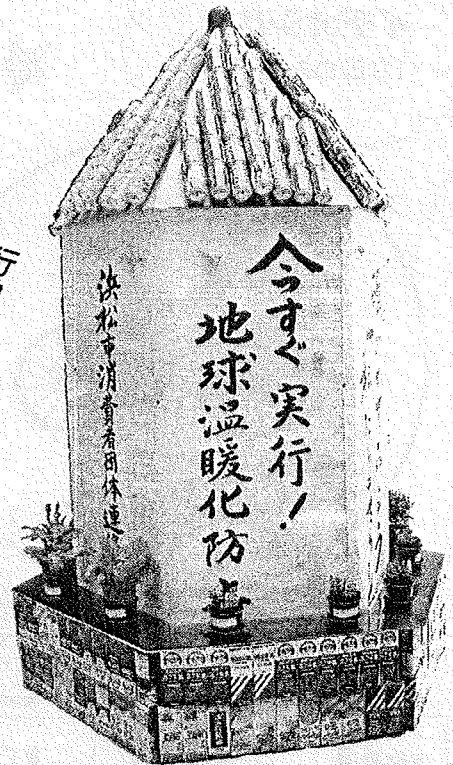 今すぐ実行!
地球温暖化防止
浜松市消費者団体連
行